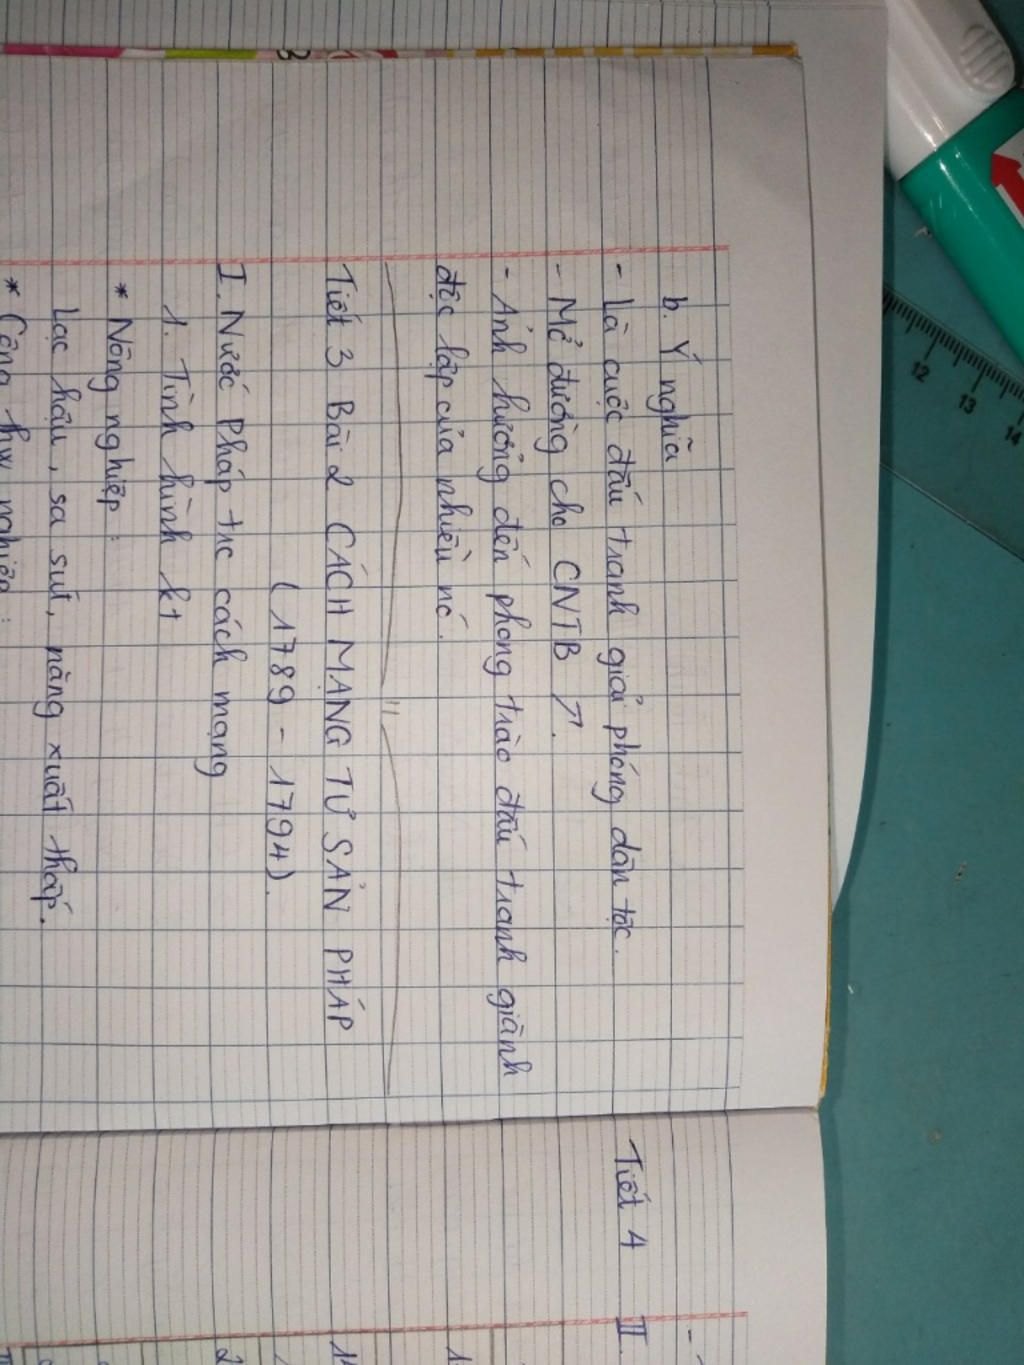 b. Ý nghĩa
- Là cuộc đấu tranh giải phóng dân tộc.
- Mở đường cho CNTB ↗.
- Ảnh hưởng đến phong trào đấu tranh giành
độc lập của nhiều nc.
Tiết 3 Bài 2 CÁCH MẠNG TƯ SẢN PHÁP
(1789 - 1794).
I. Nước Pháp trc cách mạng
1. Tình hình kt
* Nông nghiệp:
Lạc hậu, sa sút, năng xuất thấp.
* Công thw nghiệp:
Tiết 4
II.
12
13
14